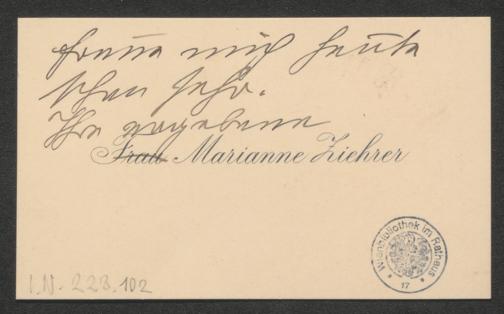 freue mich heute
schon sehr.
Ihre ergebene
Frau Marianne Ziehrer
Wienbibliothek im Rathaus
17
I.N. 223.102